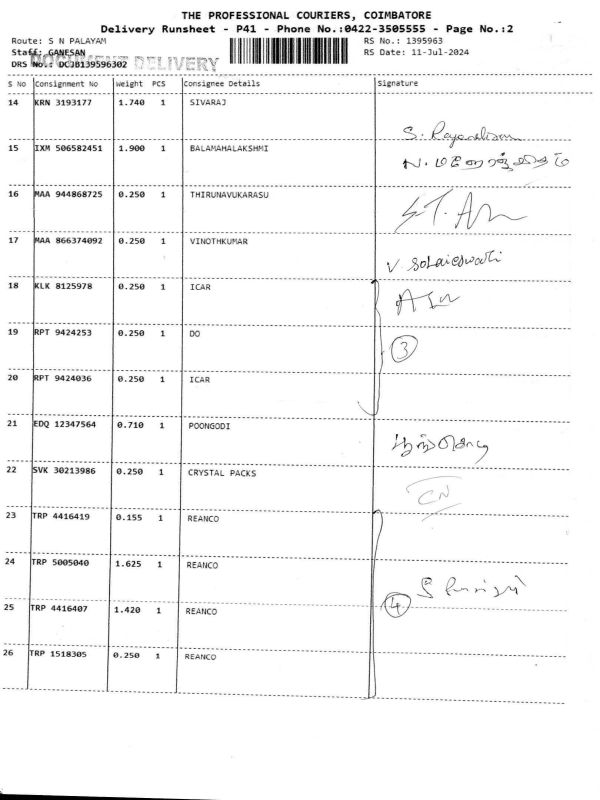 THE PROFESSIONAL COURIERS, COIMBATORE
Delivery Runsheet - P41 - Phone No.:0422-3505555 - Page No.:2
Route: S N PALAYAM RS No.: 1395963
Staff: GANESAN RS Date: 11-Jul-2024
DRS No.: DCJB139596302 DOCUMENT DELIVERY
S No Consignment No Weight PCS Consignee Details Signature
14 KRN 3193177 1.740 1 SIVARAJ
15 IXM 506582451 1.900 1 BALAMAHALAKSHMI
16 MAA 944868725 0.250 1 THIRUNAVUKARASU
17 MAA 866374092 0.250 1 VINOTHKUMAR
V
18 KLK 8125978 0.250 1 ICAR
19 RPT 9424253 0.250 1 DO
3
20 RPT 9424036 0.250 1 ICAR
21 EDQ 12347564 0.710 1 POONGODI
22 SVK 30213986 0.250 1 CRYSTAL PACKS
CN
23 TRP 4416419 0.155 1 REANCO
24 TRP 5005040 1.625 1 REANCO
25 TRP 4416407 1.420 1 REANCO
4
26 TRP 1518305 0.250 1 REANCO